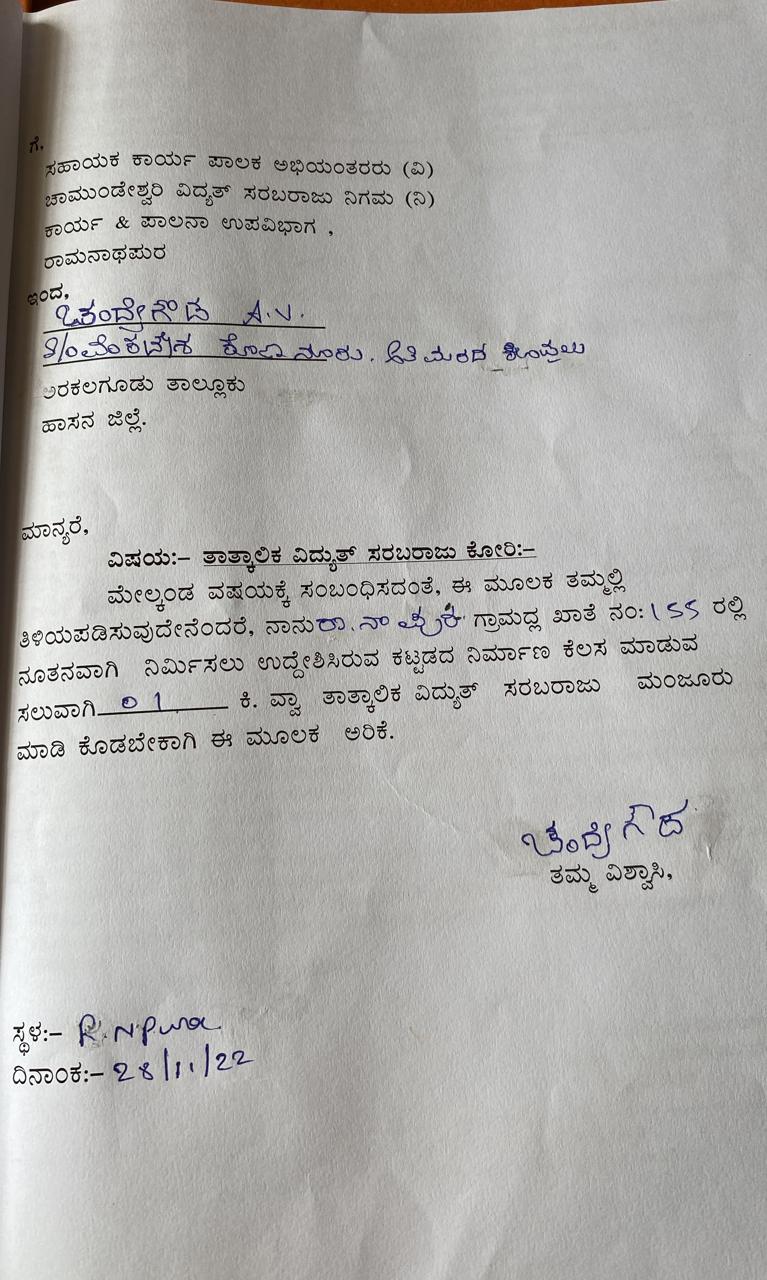 ಗೆ,
ಸಹಾಯಕ ಕಾರ್ಯ ಪಾಲಕ ಅಭಿಯಂತರರು (ವಿ)
ಚಾಮುಂಡೇಶ್ವರಿ ವಿದ್ಯತ್ ಸರಬರಾಜು ನಿಗಮ (ನಿ)
ಕಾರ್ಯ & ಪಾಲನಾ ಉಪವಿಭಾಗ ,
ರಾಮನಾಥಪುರ
ಇಂದ,
ಚಂದ್ರೇಗೌಡ A.V.
S/o ವೆಂಕಟೇಶ
ಅರಕಲಗೂಡು ತಾಲ್ಲೂಕು
ಹಾಸನ ಜಿಲ್ಲೆ.
ಮಾನ್ಯರೆ,
ವಿಷಯ:– ತಾತ್ಕಾಲಿಕ ವಿದ್ಯುತ್ ಸರಬರಾಜು ಕೋರಿ:–
ಮೇಲ್ಕಂಡ ವಷಯಕ್ಕೆ ಸಂಬಂಧಿಸದಂತೆ, ಈ ಮೂಲಕ ತಮ್ಮಲ್ಲಿ
ತಿಳಿಯಪಡಿಸುವುದೇನೆಂದರೆ, ನಾನು ರಾ.ನಾ ಪುರ ಗ್ರಾಮದ್ಲ ಖಾತೆ ನಂ: 155 ರಲ್ಲಿ
ನೂತನವಾಗಿ ನಿರ್ಮಿಸಲು ಉದ್ದೇಶಿಸಿರುವ ಕಟ್ಟಡದ ನಿರ್ಮಾಣ ಕೆಲಸ ಮಾಡುವ
ಸಲುವಾಗಿ 01 ಕಿ. ವ್ವಾ ತಾತ್ಕಾಲಿಕ ವಿದ್ಯುತ್ ಸರಬರಾಜು ಮಂಜೂರು
ಮಾಡಿ ಕೊಡಬೇಕಾಗಿ ಈ ಮೂಲಕ ಅರಿಕೆ.
ಚಂದ್ರೇಗೌಡ
ತಮ್ಮ ವಿಶ್ವಾಸಿ,
ಸ್ಥಳ:– R.N Pura
ದಿನಾಂಕ:– 28/11/22